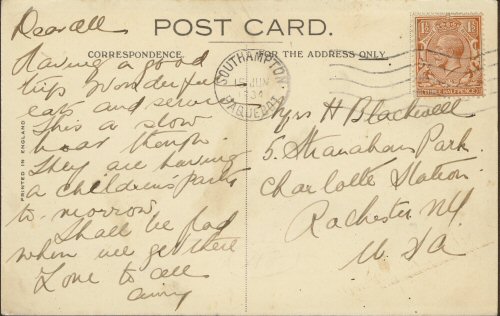 POST CARD.
CORRESPONDENCE.
FOR THE ADDRESS ONLY.
PRINTED IN ENGLAND
Dear all
Having a good
trip wonderful
eats and
This a slow
boat though.
They are having
a children's party
to-morrow
Shall be glad
when we get there
Love to all
SOUTHAMPTON
JUN
34
PAQUEBOT
1½ 1½
THREE HALFPENCE
Mrs H Blackwell
5. Stranahan Park.
Charlotte Station.
Rochester NY.
U.S.A